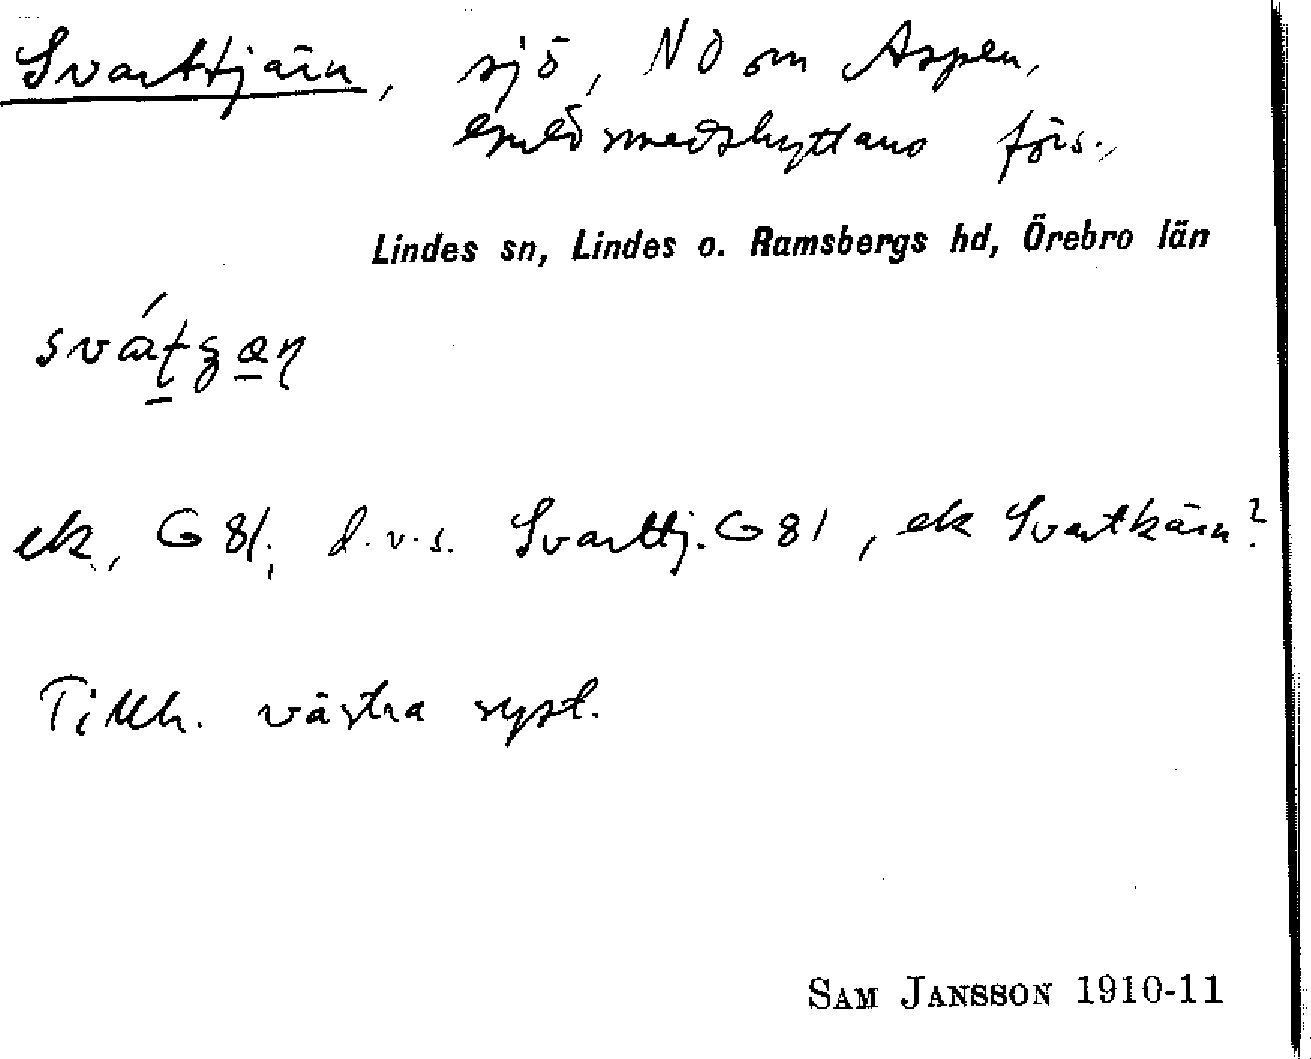 Svarttjärn, sjö, NO om Aspen,
Guldsmedshyttans förs.,
Lindes sn, Lindes o. Ramsbergs hd, Örebro län
ek, G 81; d.v.s. Svarttj. G 81, ek Svartkärn?
Tillh. västra syst.
SAM JANSSON 1910-11